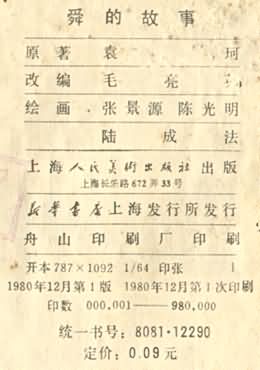 舜的故事
原著 袁珂
改编 毛亮
绘画 张景源 陈光明
陆成法
上海人民美术出版社出版
上海长乐路672弄33号
新华书店上海发行所发行
舟山印刷厂印刷
开本787×1092 1/64 印张 1
1980年12月第1版 1980年12月第1次印刷
印数 000,001——980,000
统一书号：8081·12290
定价：0.09元